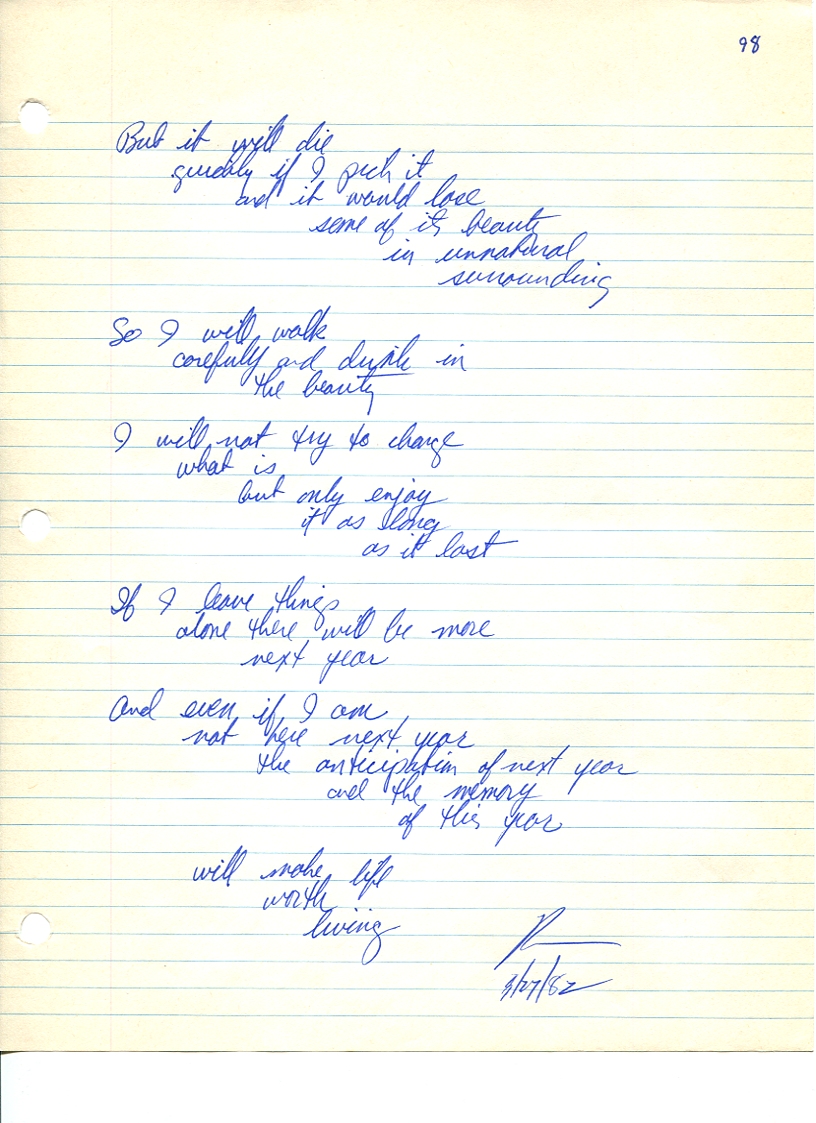 98
But it will die
quickly if I pick it
and it would lose
some of its beauty
in unnatural
surrounding
So I will walk
carefully and drink in
the beauty
I will not try to change
what is
but only enjoy
it as long
as it last
If I leave things
alone there will be more
next year
And even if I am
not here next year
the anticipation of next year
and the memory
of this year
will make life
worth
living
R
3/27/82